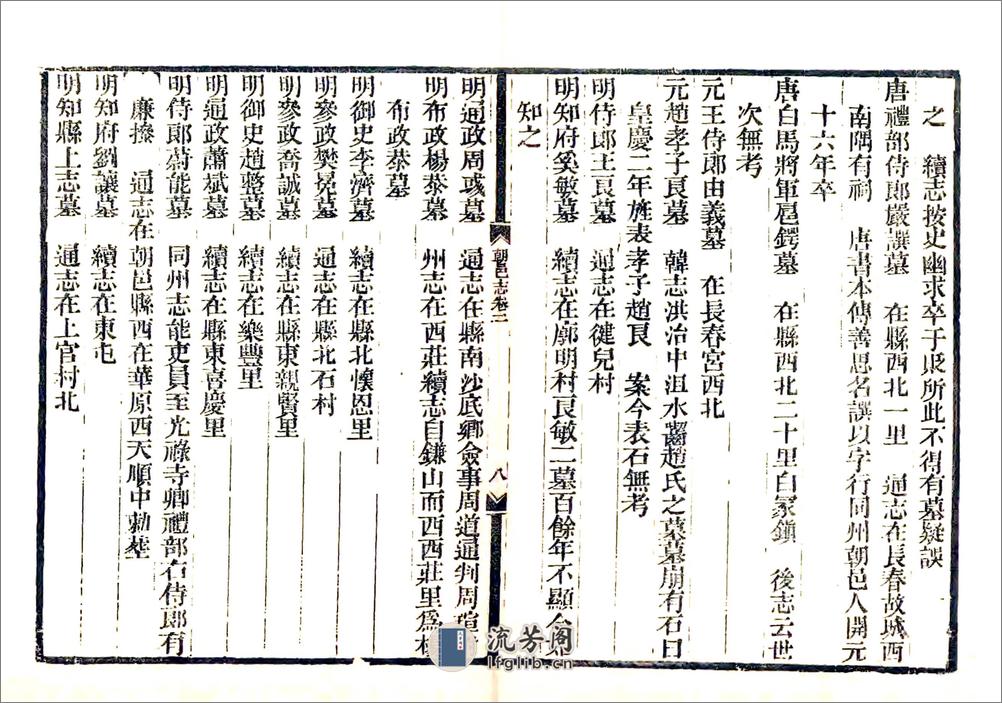 之　續志按史幽求卒于貶所此不得有墓疑誤
唐禮部侍郎嚴譔墓　在縣西北一里　通志在長春故城西
南隅有祠　唐書本傳善思名譔以字行同州朝邑人開元
十六年卒
唐白馬將軍扈鍔墓　在縣西北二十里白冢鎮　後志云世
次無考
元王侍郎由義墓　在長春宮西北
元趙孝子良墓　韓志洪治中洰水齧趙氏之墓墓崩有石曰
皇慶二年旌表孝子趙良　案今表石無考
明侍郎王良墓　通志在健兒村
明知府奚敏墓　續志在廓明村良敏二墓百餘年不顯今
知之
朝邑志卷二
八
明通政周彧墓　通志在縣南沙底鄉僉事周道通判周瑄
明布政楊恭墓　州志在西莊續志自鎌山而西西莊里爲
布政恭墓
明御史李濟墓　續志在縣北懷恩里
明參政樊冕墓　通志在縣北石村
明參政喬誠墓　續志在縣東親賢里
明御史趙整墓　續志在樂豐里
明通政蕭斌墓　續志在縣東喜慶里
明侍郎蔚能墓　同州志能吏員至光祿寺卿禮部右侍郎有
廉操　通志在朝邑縣西在華原西天順中勅塟
明知府劉讓墓　續志在東屯
明知縣上志墓　通志在上官村北
流芳閣
lfglib.cn